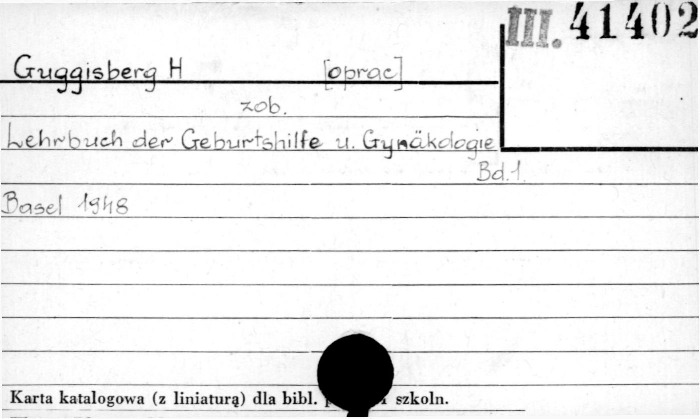 III. 41402
Guggisberg H [oprac]
zob.
Lehrbuch der Geburtshilfe u. Gynäkologie
Bd.1.
Basel 1948
Karta katalogowa (z liniaturą) dla bibl. szkoln.